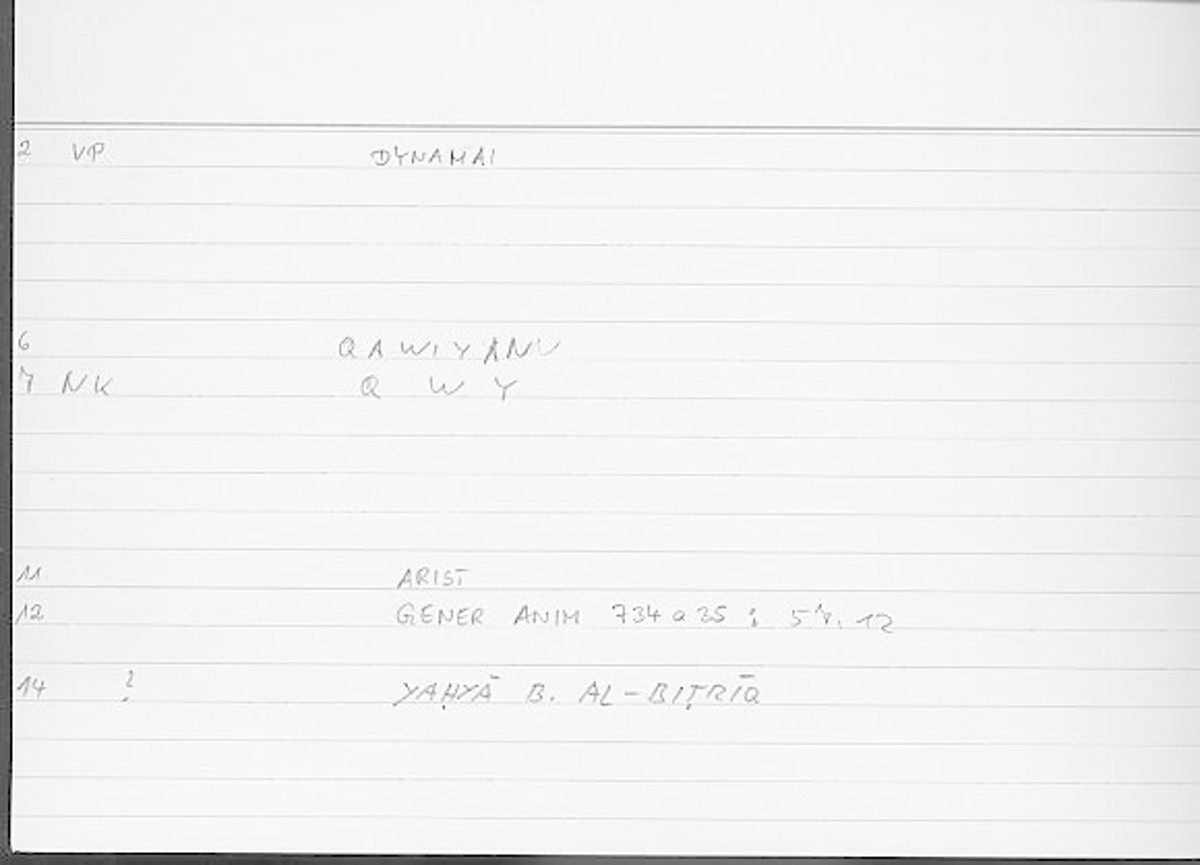 2 VP DYNAMAI
6 QAWIYANU
7 NK Q W Y
11 ARIST
12 GENER ANIM 734 a 35 ; 57. 12
14 ? YAḤYĀ B. AL-BIṬRĪQ